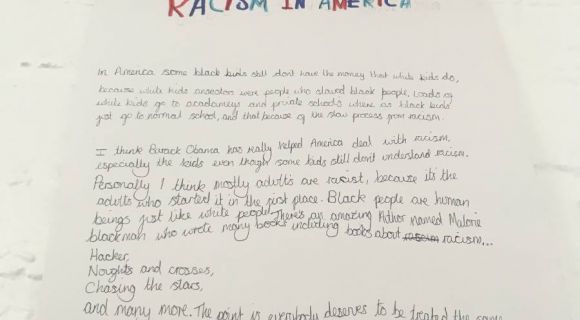 RACISM IN AMERICA
In America some black kids still dont have the money that white kids do,
because white kids ansectors were people who slaved black people. Loads of
white kids go to acadameys and private schools where as black kids
just go to normal school, and that because of the slow process from racism.
I think Barack Obama has really helped America deal with racism,
especially the kids even thogh some kids still don't understand racism.
Personally I think mostly adults are racist, because it's the
adults who started it in the first place. Black people are human
beings just like white people. There's an amazing Author named Malorie
blackman who wrote many books including books about racism...
Hacker,
Noughts and crosses,
Chasing the stars,
and many more. The point is everybody deserves to be treated the same